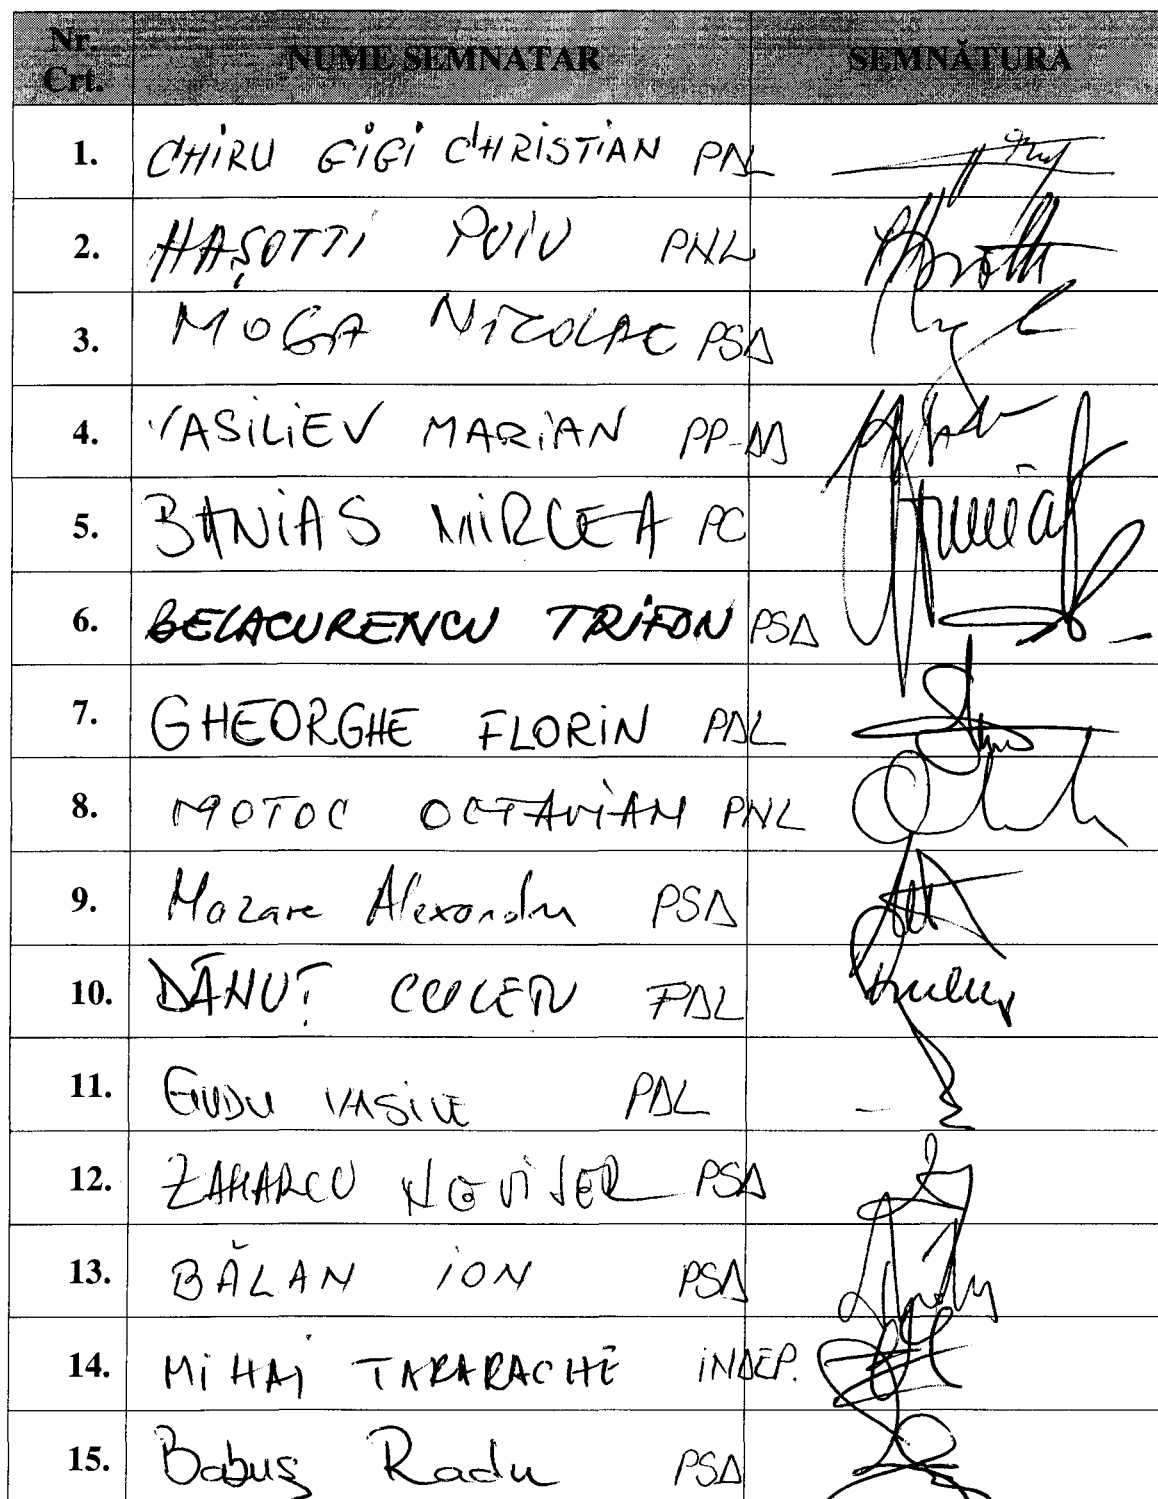 Nr. Crt. NUME SEMNATAR SEMNĂTURA
1. CHIRU GIGI CHRISTIAN PDL
2. HAȘOTTI PUIU PNL
3. MOGA NICOLAE PSD
4. VASILIEV MARIAN PP-DD
5. BANIAS MIRCEA PC
6. BELACURENCU TRIFON PSD
7. GHEORGHE FLORIN PDL
8. MOTOC OCTAVIAN PNL
9. Mazare Alexandru PSD
10. DĂNUȚ CULEȚU PDL
11. GUDU VASILE PDL
12. ZAHARCU NEVIJER PSD
13. BĂLAN ION PSD
14. MIHAI TARARACHE INDEP.
15. Babuș Radu PSD